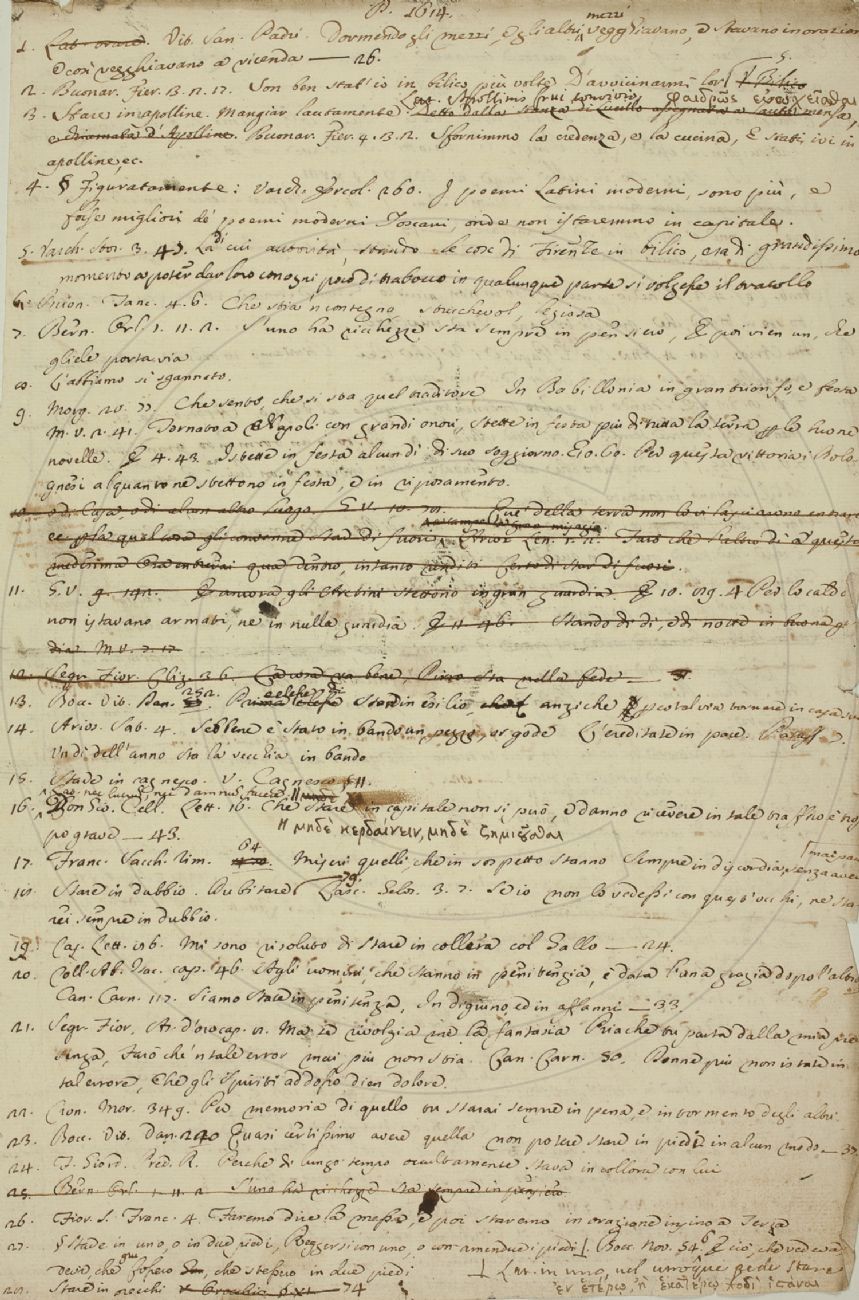 P. 1614.
1. Vit. San. Padr. Dormendo gli mezzi, e gli altri mezzi vegghiavano, e stavano in orazion
e così vegghiavano a vicenda — 26.
2. Buonar. Fier. 3. 2. 17. Son ben stat' io in bilico più volte D'avvicinarmi lor
3. Stare in apolline. Mangiar lautamente. Lat.
e chiamata d'Apolline. Buonar. Fier. 4. 3. 2. Sfornimmo la credenza, e la cucina, E statti ivi in
apolline, ec.
4. § Figuratamente: Varch. Ercol. 260. I poemi Latini moderni, sono più, e
forse migliori de' poemi moderni Toscani, onde non istaremmo in capitale.
5. Varch. Stor. 3. 45. La di cui autorità, stando le cose di Firenze in bilico, era di grandissimo
momento a poter dar loro con ogni poco di trabocco in qualunque parte si volgesse il tracollo
6. Buon. Tanc. 4. 6. Che stia 'n contegno, smorfiosa
7. Bern. Orl. 1. 11. 2. S'uno ha ricchezze sta sempre in pensiero, E poi vien un, che
gliele porta via
8. L'attiamo si sgannato.
9. Morg. 20. 77. Che sento, che si sta quel traditore In Babillonia in gran trionfo, e festa
M. V. 2. 41. Tornato a Napoli con grandi onori, stette in festa più di tutta la terra per le buone
novelle. E 4. 43. Istette in festa alcun dì di suo soggiorno. E 10. 60. Per questa vittoria i Bolo-
gnesi alquanto ne stettono in festa, e in riposamento.
10. o di Casa o di alcun altro luogo. G. V. 10. 70. Que' della terra non lo vi lasciarono entrare
ec. per la qual cosa gli convenne star di fuori
medesima
11. G. V. 9. 142. E ancora gli Aretini stettono in gran guardia E 10. 119. 4 Per lo caldo
non istavano armati, ne in nulla guardia. E 11. 46. Stando di dì, e di notte in buona gu-
dia. M. V. 7. 17.
12. Segr. Fior. Cliz. 3. 6. La cosa va bene, Pirro sta nella fede —
13. Bocc. Vit. Dan. 252. stare in esilio, anziche per cotal via tornare in casa sua
14. Arios. Sat. 4. Sebbene è stato in bando un pezzo, or gode L'ereditate in pace.
Undì dell'anno sta la vecchia in bando
15. Stare in cagnesco. V. Cagnesco § II.
16. Don Gio. Cell. Lett. 16. Che stare in capitale non si può, e danno ricevere in tale traffico è trop-
po grave — 43. μηδὲ κερδαίνειν, μηδὲ ζημιοῦσθαι
17. Franc. Sacch. rim. 64 Miseri quelli che in sospetto stanno Sempre in discordia, senza aver
18. Stare in dubbio. Dubitare Lasc. Gelos. 3. 7. Se io non lo vedessi con quest'occhi, ne sta-
rei sempre in dubbio.
19. Cas. Lett. 86. Mi sono risoluto di stare in collera col Gallo — 24.
20. Coll. Ab. Isac. cap. 46. Agli uomini che stanno in penitenzia, è data l'una grazia dopo l'altra
Can. Carn. 117. Siamo state in penitenza, In digiuno, ed in affanni — 33.
21. Segr. Fior. As. d'oro cap. 2. Ma se rivolgia me la fantasia Pria che tu parta dalla mia pre-
senza, Farò ché 'n tale error mai più non stia. Can. Carn. 50. Donne più non istate in
tal errore, Che gli Spiriti addosso dien dolore.
22. Cron. Mor. 349. Per memoria di quello tu starai sempre in pena, e in tormento degli altri
23. Bocc. Vit. Dan. 240 Quasi certissimo avere quella non potere stare in piedi in alcun modo — 37
24. F. Giord. Pred. R. Perche di lungo tempo occultamente stava in collora con lui
25. Bern. Orl. 1. 11. 2 S'uno ha ricchezze sta sempre in pensiero
26. Fior. S. Franc. 4. Faremo dire la messa, e poi staremo in orazione insino a Terza
27. § Stare in uno, o in due piedi, Reggersi con uno, o con amendue i piedi. Bocc. Nov. 54. 6. E ciò, che vedeva
deva, che gru fossero, che stessero in due piedi
Lat. in uno, vel utroque pede stare
ἐν ἑτέρῳ, ἢ ἑκατέρῳ ποδὶ ἵστασθαι
28. Stare in orecchi — 74